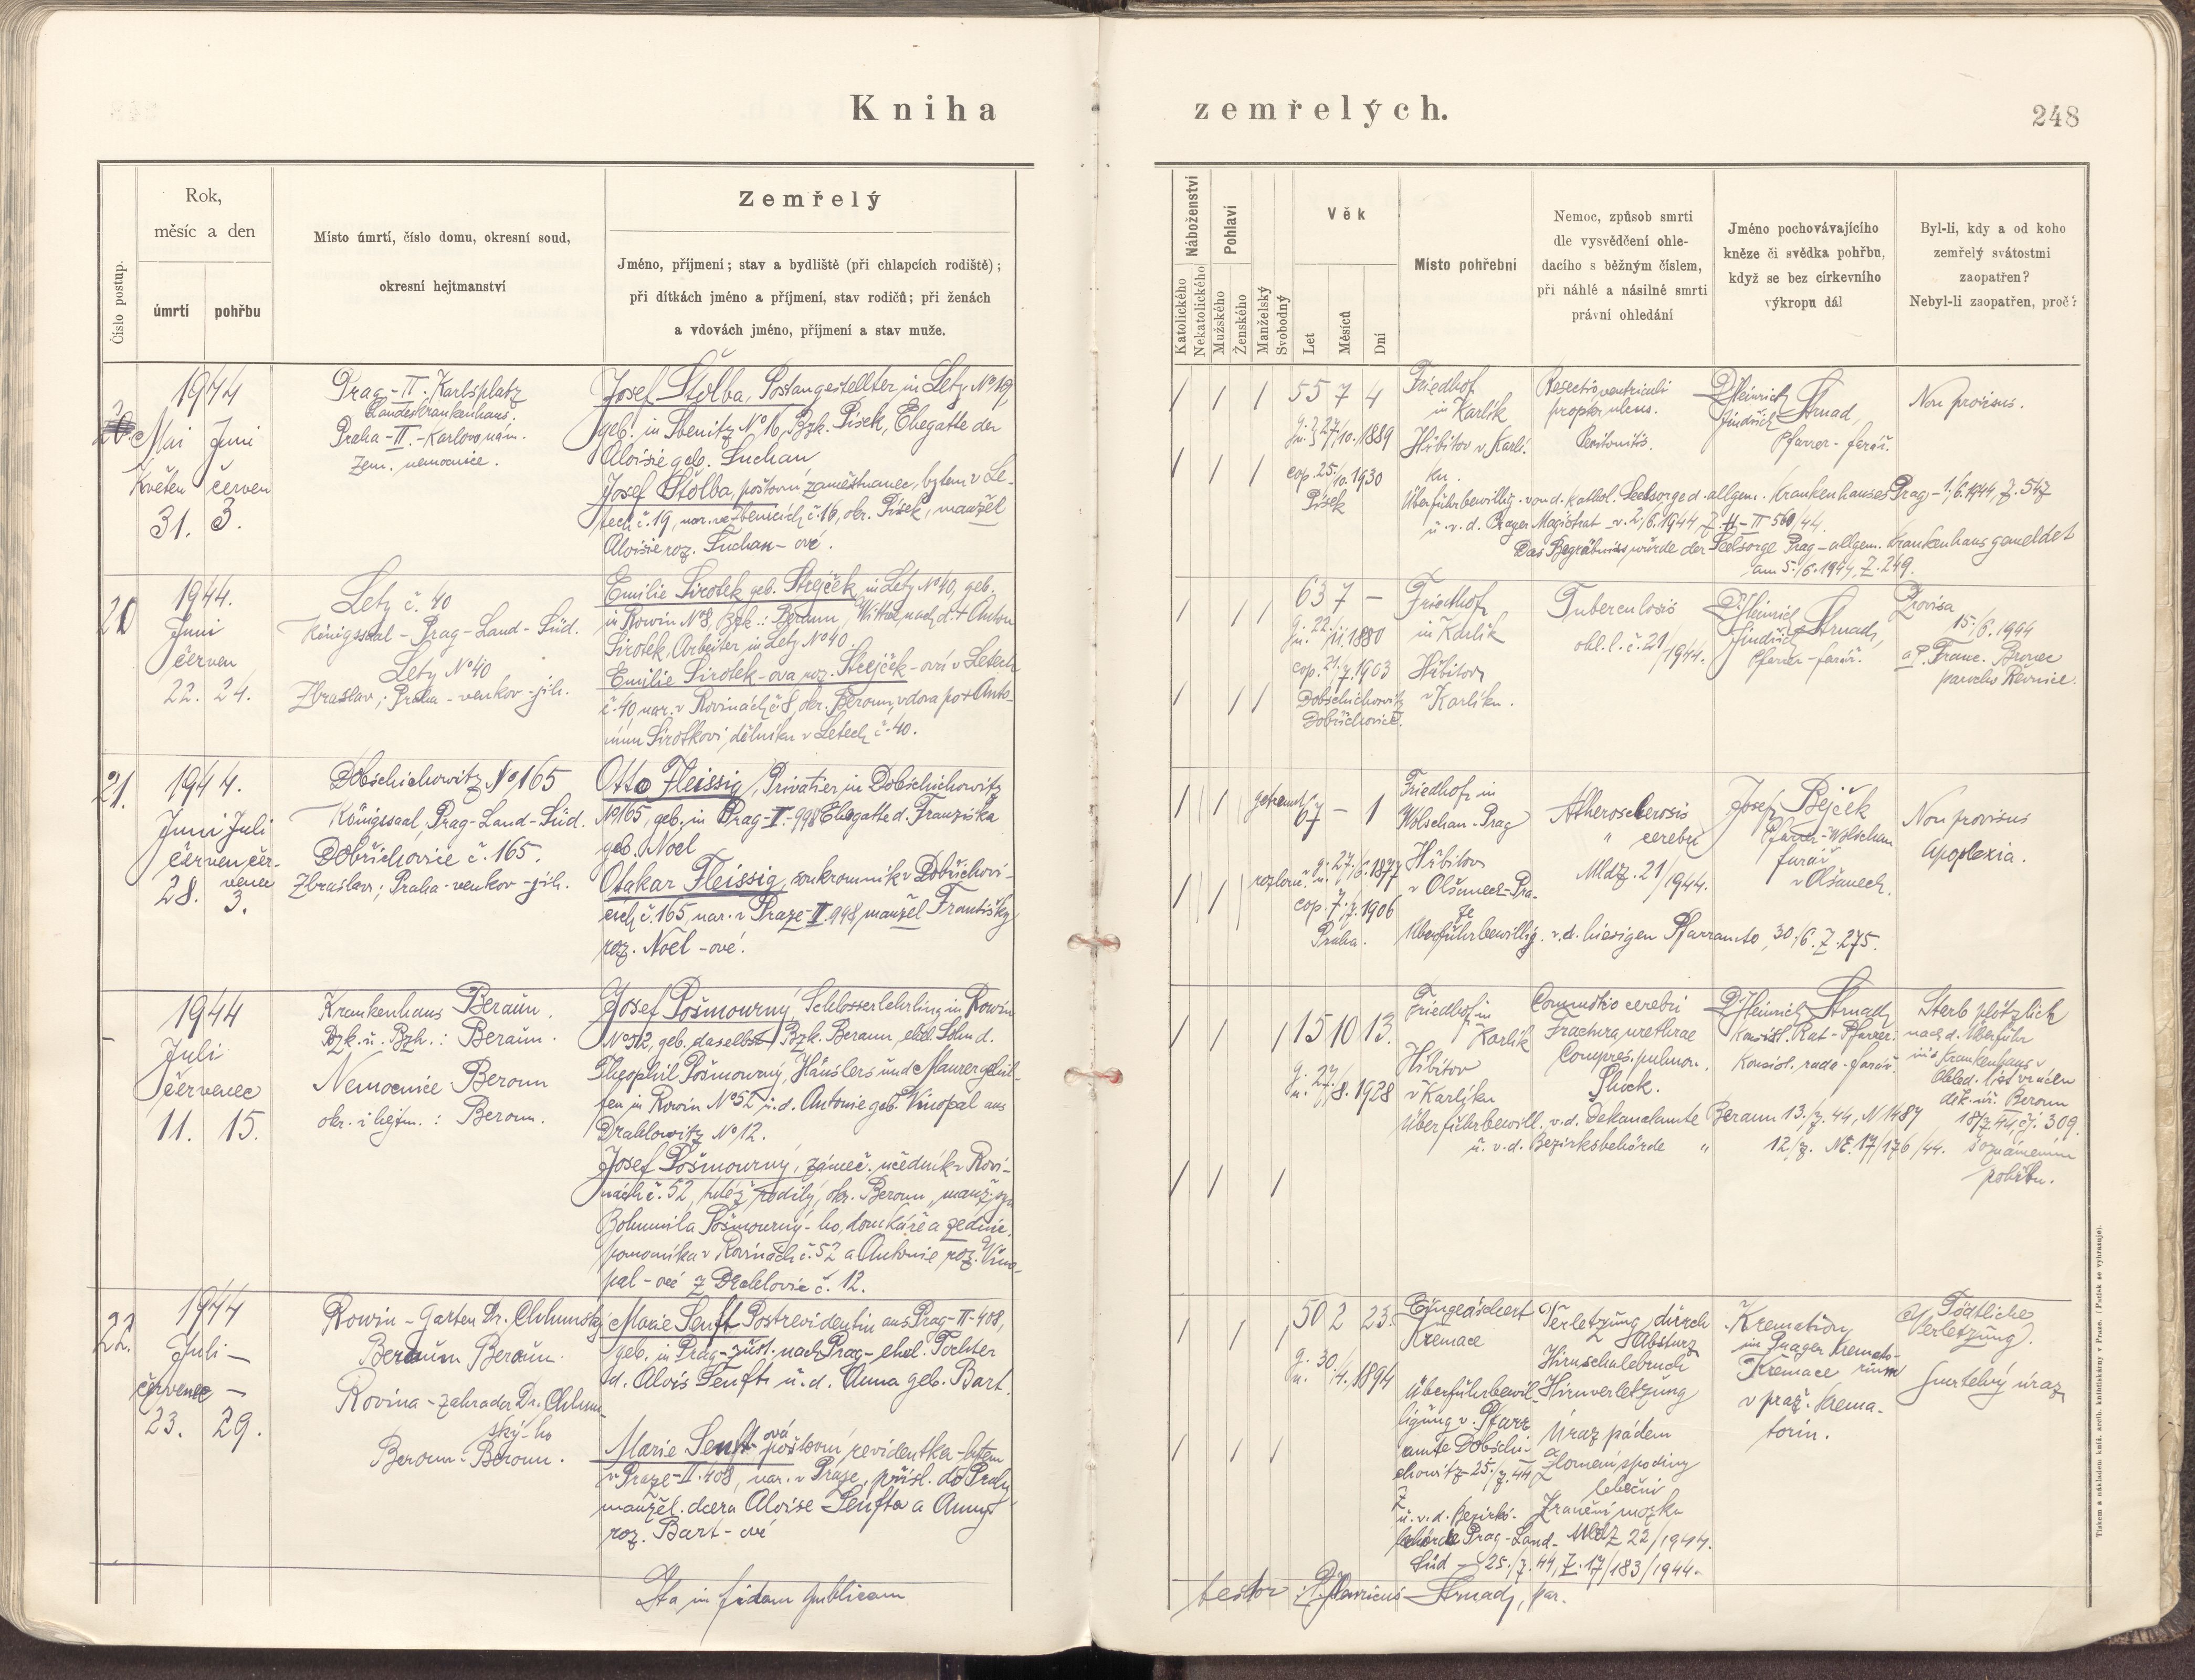 Kniha zemřelých.
248
Číslo postup.
Rok,
měsíc a den
úmrtí
pohřbu
Místo úmrtí, číslo domu, okresní soud,
okresní hejtmanství
Zemřelý
Jméno, příjmení; stav a bydliště (při chlapcích rodiště);
při dítkách jméno a příjmení, stav rodičů; při ženách
a vdovách jméno, příjmení a stav muže.
Náboženství
Katolického
Nekatolického
Pohlaví
Mužského
Ženského
Manželský
Svobodný
Věk
Let
Měsíců
Dní
Místo pohřební
Nemoc, způsob smrti
dle vysvědčení ohle-
dacího s běžným číslem,
při náhlé a násilné smrti
právní ohledání
Jméno pochovávajícího
kněze či svědka pohřbu,
když se bez církevního
výkropu dál
Byl-li, kdy a od koho
zemřelý svátostmi
zaopatřen?
Nebyl-li zaopatřen, proč?
1944
Mai Juni
Květen červen
31. 3.
Prag-II-Karlsplatz
Landeskrankenhaus.
Praha-II.-Karlovo nám.
Zem. nemocnice.
Josef Štolba, Postangestellter in Lety No 19,
geb. in Sbenitz No 16, Bzk. Pisek, Ehegatte der
Aloisie geb. Suchan
Josef Štolba, poštovní zaměstnanec, bytem v Le-
tech č. 19, nar. ve Zbenicích č. 16, okr. Písek, manžel
Aloisie roz. Suchan-ové.
55 7 4
27./10. 1889
cop. 25./10. 1930
Písek
Friedhof
in Karlik
Hřbitov v Karlí-
ku.
Resectio ventriculi
propter ulcus.
Peritonitis.
Heinrich
Jindřich Strnad,
Pfarrer-farář.
Non provisus.
Überführbewillig. von d. kathol. Seelsorge d. allgem. Krankenhauses Prag-1./6. 1944, Z. 547
u. v. d. Prager Magistrat v. 2./6. 1944, Z. II-II 560/44.
Das Begräbniss würde der Seelsorge Prag-allgem. Krankenhaus gemeldet
am 5./6. 1944, Z. 249.
20
1944.
Juni
červen
22. 24.
Lety č. 40
Königssaal-Prag-Land-Süd.
Lety No 40
Zbraslav; Praha-venkov-jih.
Emilie Sirotek geb. Strejček, in Lety No 40, geb.
in Rowin No 8, Bzk.: Beraun, Witwe nach d. + Anton
Sirotek, Arbeiter in Lety No 40.
Emilie Sirotek-ova roz. Strejček-ová v Letech
č. 40, nar. v Rovinách č. 8, okr. Beroun, vdova po + Anto-
nínu Sirotkovi, dělníku v Letech č. 40.
63 7 —
22. 1880
cop. 21./7. 1903
Dobschichowitz
Dobřichovice.
Friedhof
in Karlik
Hřbitov
v Karlíku.
Tuberculosis
ohl. l. č. 21/1944.
Heinrich
Jindřich Strnad,
Pfarrer-farář.
Provisa
15./6. 1944
a P. Franc.
parochus Řevnice.
21.
1944.
Juni Juli
červen čer-
venec
28. 3.
Dobschichowitz No 165
Königssaal, Prag-Land-Süd.
Dobřichovice č. 165.
Zbraslav; Praha-venkov-jih.
Otto Fleissig, Privatier in Dobschichowitz
No 165, geb. in Prag-II-998 Ehegatte d. Franziska
geb. Noel
Otakar Fleissig, soukromník v Dobřichovi-
cích č. 165, nar. v Praze-II. 998, manžel Františky
roz. Noel-ové.
getrennt
rozlouč.
67 — 1
27./6. 1877
cop. 7./7. 1906
Praha.
Friedhof in
Wolschan-Prag
Hřbitov
v Olšanech-Pra-
ze
Atherosclerosis
" cerebri
Mldz. 21/1944.
Josef Bejček
Pfarrer-Wolschan
farář
v Olšanech.
Non provisus
Apoplexia.
Überführbewillig. v. d. hiesigen Pfarramte, 30./6. Z. 275.
1944
Juli
červenec
11. 15.
Krankenhaus Beraun.
Bzk. u. Bzh.: Beraun.
Nemocnice Beroun
okr. i hejtm.: Beroun.
Josef Pošmourný, Schlosserlehrling in Rowin
No 52, geb. daselbst, Bzk. Beraun, ehel. Sohn d.
Theophil Pošmourný, Häuslers und Maurergehil-
fen in Rowin No 52 u. d. Antonie geb. Vinopal aus
Drahlowitz No 12.
Josef Pošmourný, zámeč. učedník v Rovi-
nách č. 52, tutéž rodilý, okr. Beroun, manž. syn
Bohumila Pošmourný-ho, domkáře a zednic.
pomocníka v Rovinách č. 52 a Antonie roz. Vino-
pal-ové z Drahlovic č. 12.
15 10 13.
27./8. 1928
Friedhof in
Karlik
Hřbitov
v Karlíku
Commotio cerebri
Fractura urethrae
Compres. pulmon.
Shock.
Heinrich Strnad,
Konsist. Rat-Pfarrer.
Konsist. rada-farář.
Sterb plötzlich
nach d. Überführ
ins Krankenhaus
Ohled. list vrácen
děk. úř. Beroun
18/7 44, čj. 309.
s oznámením
pohřbu.
Überführbewill. v. d. Dekanalamte Beraun 13./7. 44, N 1487
u. v. d. Bezirksbehörde " 12./7. No. 17/176/44.
22.
1944
Juli —
červenec —
23. 29.
Rowin-Garten Dr. Chlumský
Beraun Beraun.
Rovina-zahrada Dr. Chlum-
ský-ho
Beroun-Beroun.
Marie Senft Postrevidentin aus Prag-II-408,
geb. in Prag-züst. nach Prag-ehel. Tochter
d. Alois Senft u. d. Anna geb. Bart.
Marie Senft-ová poštovní revidentka-bytem
v Praze-II-408, nar. v Praze, přísl. do Prahy
manžel. dcera Aloise Senfta a Anny
roz. Bart-ové
50 2 23.
30./4. 1894
Eingeäschert
Kremace
Überführbewil-
ligung v. Pfarr
amte Dobschi-
chowitz 25./7. 44
u. v. d. Bezirks-
behörde Prag-Land-
Süd — 25./7. 44, Z. 17/183/1944.
Verletzung durch
Absturz
Hirnschalebruch
Hirnverletzung
Úraz pádem
Zlomení spodiny
lebeční
Zranění mozku
Mldz 22/1944.
Kremation
im Prager Kremato-
rium
Kremace
v praž. krema-
toriu.
Tödtliche
Verletzung.
Smrtelný úraz
Ita in fidem publicam
testor P. Henricus Strnad, par.
Tiskem a nákladem kníž. arcib. knihtiskárny v Praze. (Patisk se vyhrazuje).